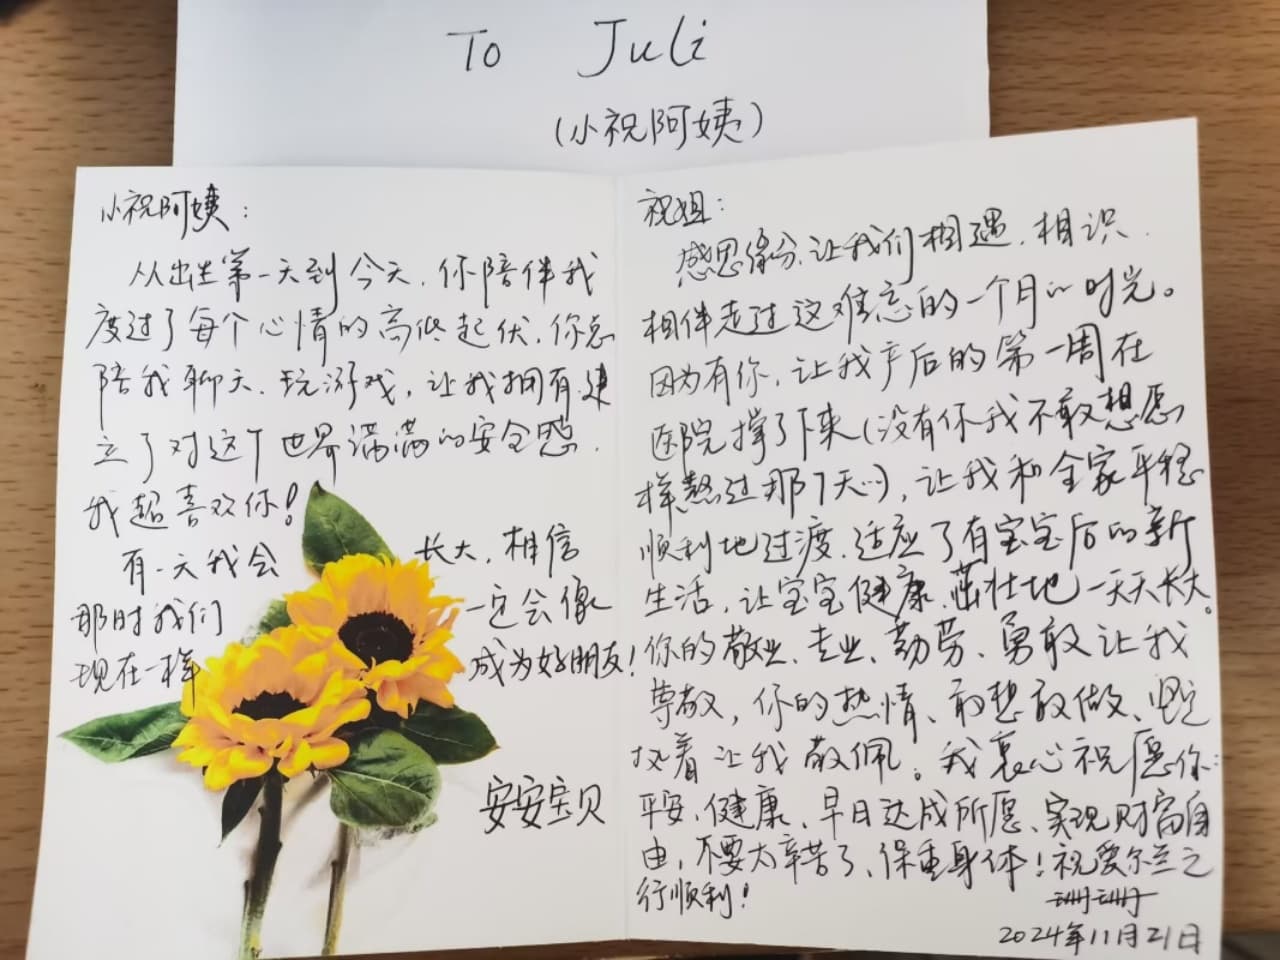 To Juli
(小祝阿姨)
小祝阿姨：
从出生第一天到今天，你陪伴我
度过了每个心情的高低起伏，你总
陪我聊天、玩游戏，让我拥有建
立了对这个世界满满的安全感，
我超喜欢你！
有一天我会长大，相信
那时我们一定会像
现在一样成为好朋友！
安安宝贝
祝姐：
感恩缘分，让我们相遇、相识、
相伴走过这难忘的一个月的时光。
因为有你，让我产后的第一周在
医院撑了下来(没有你我不敢想愿
样熬过那7天…)，让我和全家平稳
顺利地过渡、适应了有宝宝后的新
生活，让宝宝健康、茁壮地一天天长大。
你的敬业、专业、勤劳、勇敢让我
尊敬，你的热情、敢想敢做、坚定
执着让我敬佩。我衷心祝愿你：
平安、健康、早日达成所愿、实现财富自
由，不要太辛苦了、保重身体！祝爱尔兰之
行顺利！
珊珊
2024年11月21日